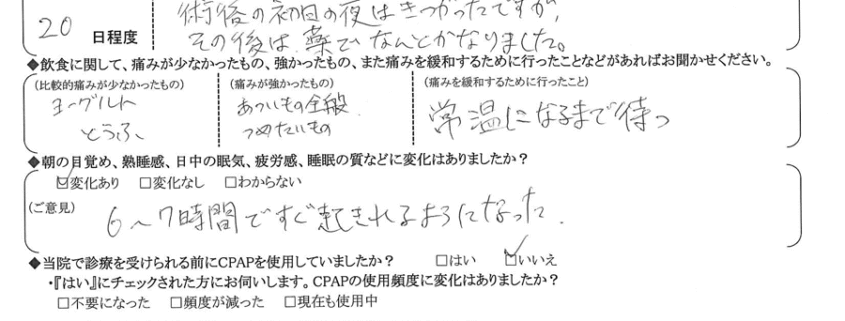 術後の初日の夜はきつかったですが、
20 日程度 その後は、薬でなんとかなりました。
◆飲食に関して、痛みが少なかったもの、強かったもの、また痛みを緩和するために行ったことなどがあればお聞かせください。
(比較的痛みが少なかったもの) (痛みが強かったもの) (痛みを緩和するために行ったこと)
ヨーグルト あついもの全般 常温になるまで待つ
とうふ つめたいもの
◆朝の目覚め、熟睡感、日中の眠気、疲労感、睡眠の質などに変化はありましたか?
☑変化あり □変化なし □わからない
(ご意見) 6〜7時間ですぐ起きれるようになった.
◆当院で診療を受けられる前にCPAPを使用していましたか? □はい ☑いいえ
・『はい』にチェックされた方にお伺いします。CPAPの使用頻度に変化はありましたか?
□不要になった □頻度が減った □現在も使用中